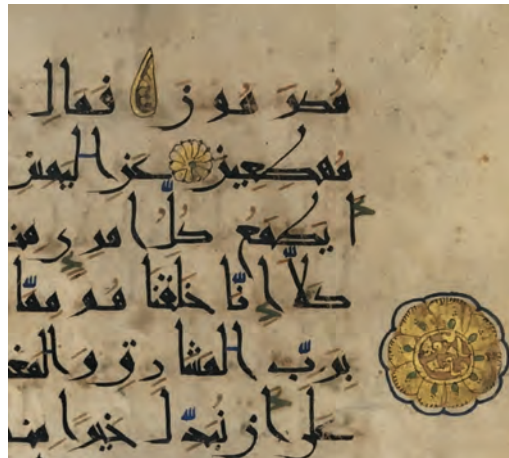 مُكرَمُونَ فَمَالِ
مُهطِعِينَ عَنِ اليَمِين
ايَطمَعُ كُلُّ امرِيٍ مِن
كَلَّا إِنَّا خَلَقنَاهُم مِمَّا
بِرَبِّ المَشَارِقِ وَالمَغ
عَلى أَن نُبَدِّلَ خَيرًا مِنه